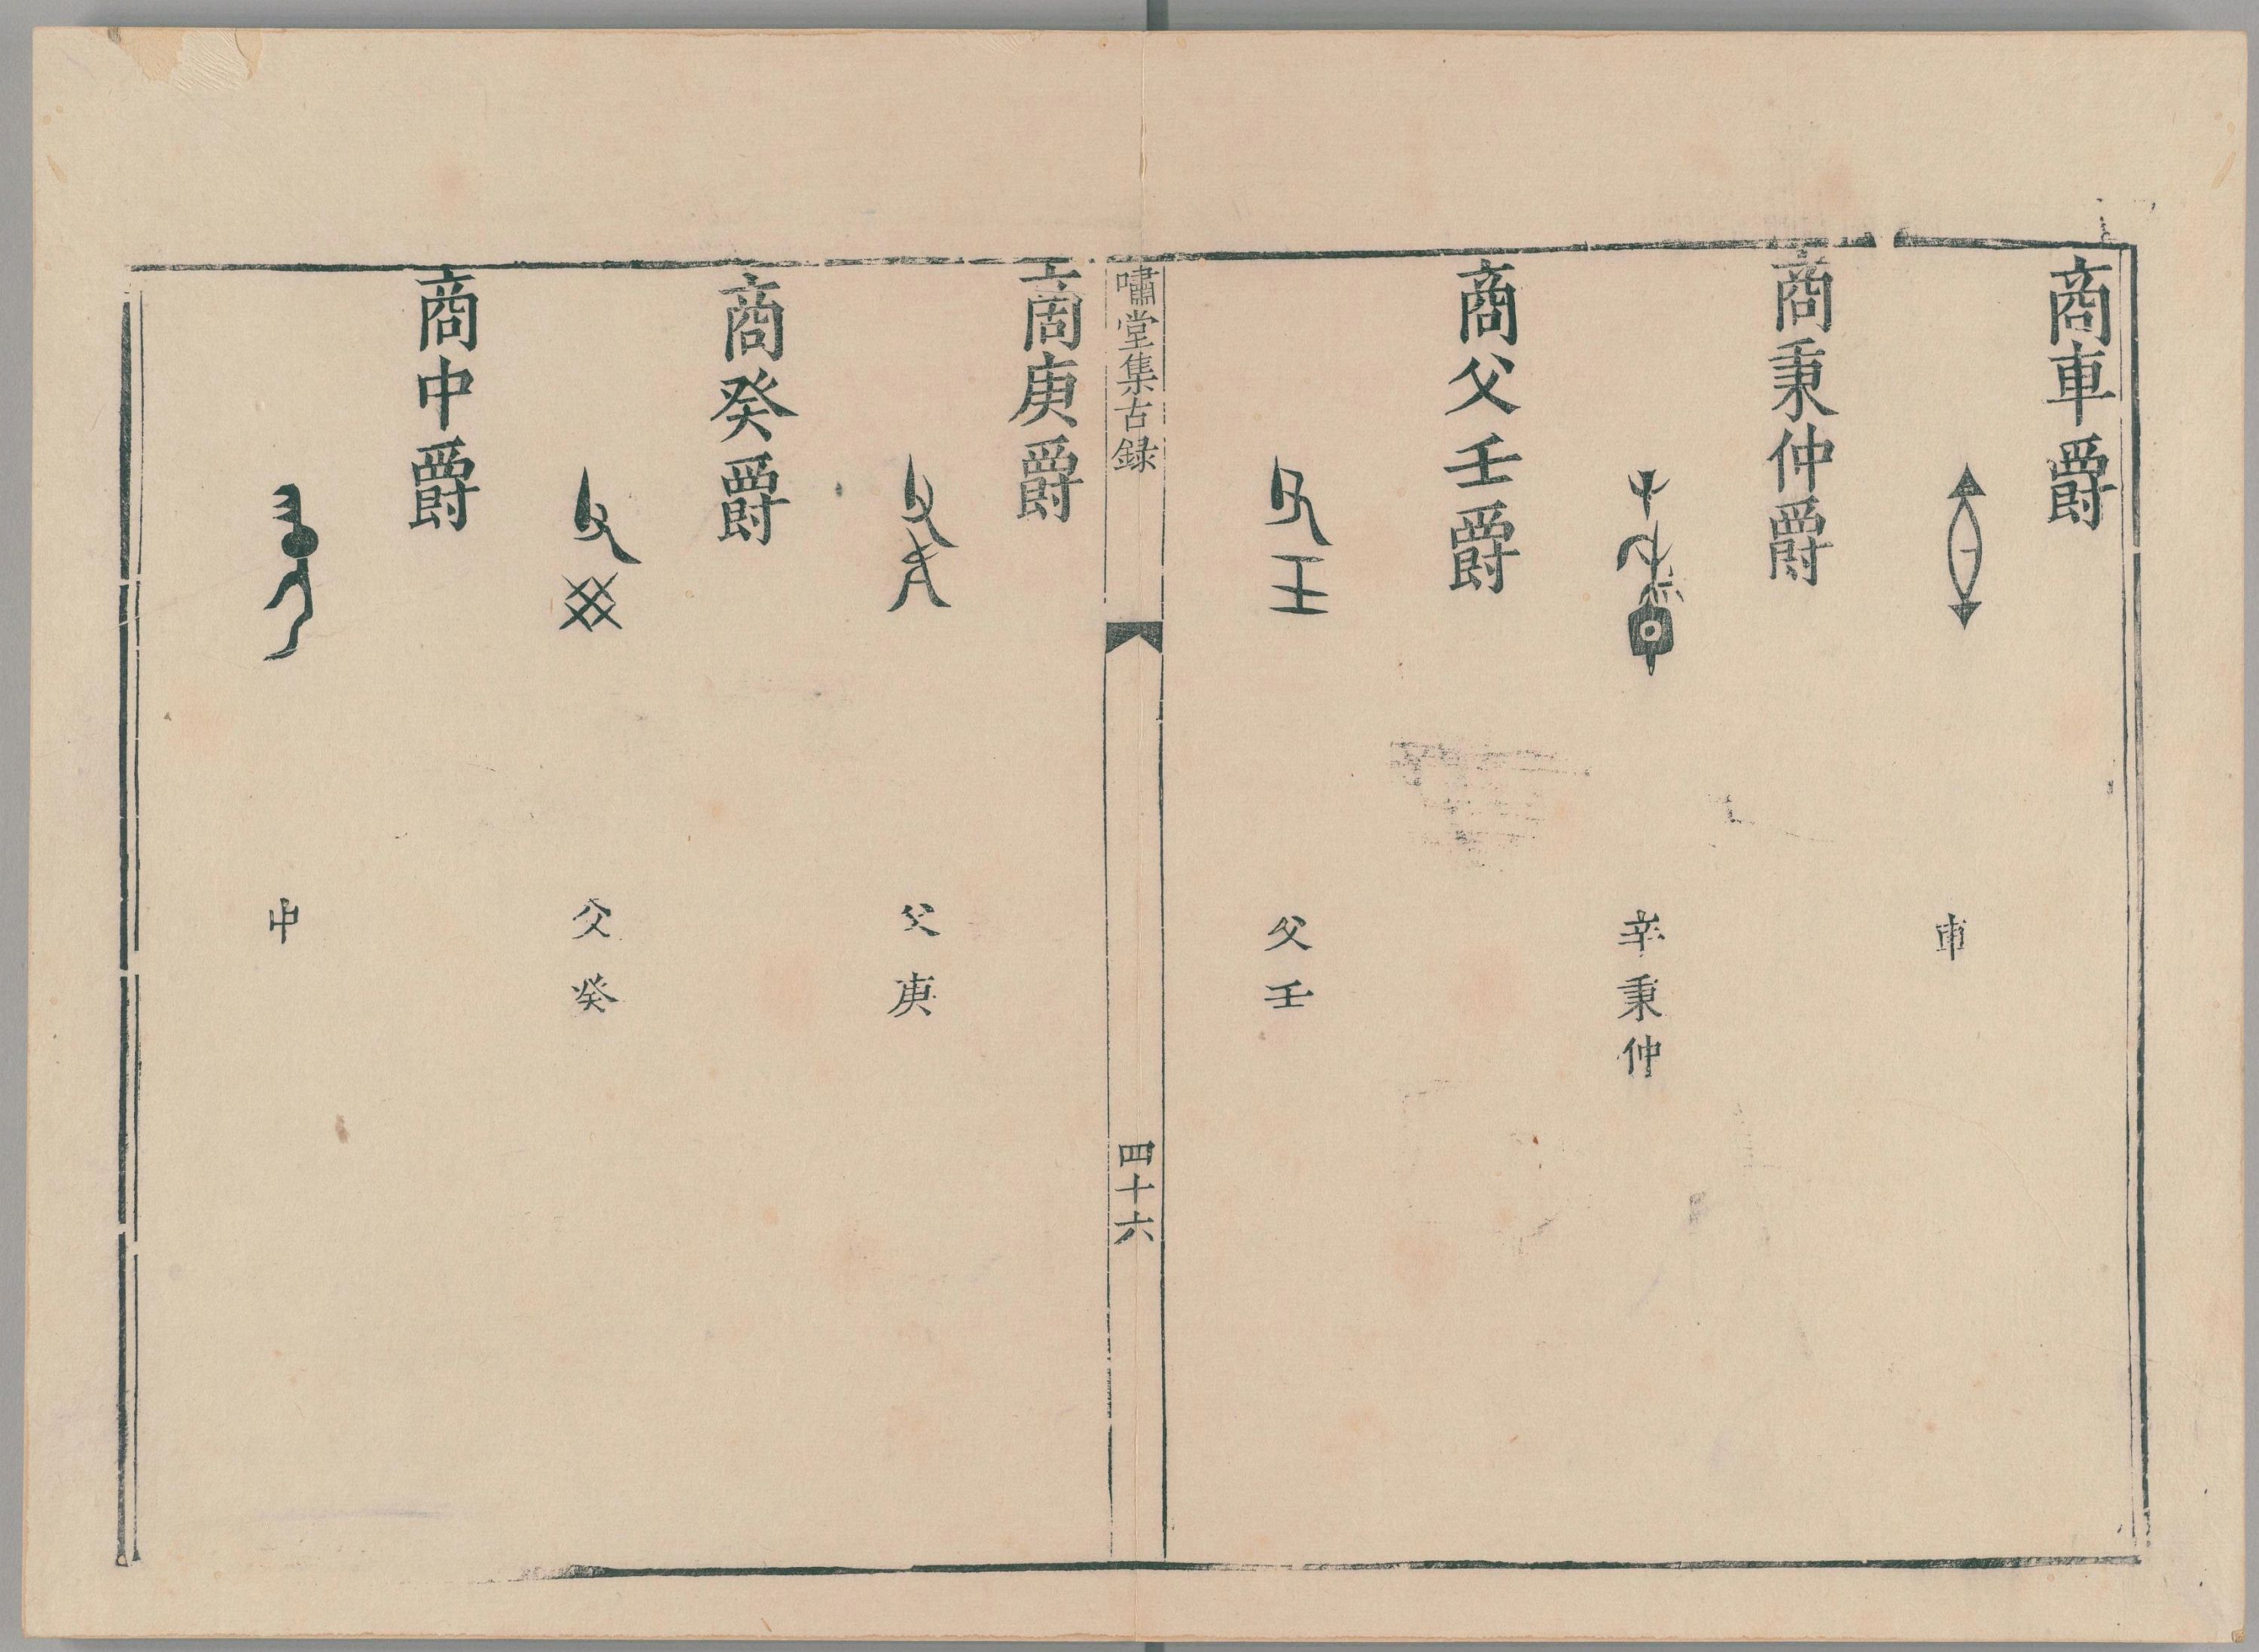 商車爵
車
商秉仲爵
辛秉仲
商父壬爵
父壬
嘯堂集古録
四十六
商庚爵
父庚
商癸爵
父癸
商中爵
中